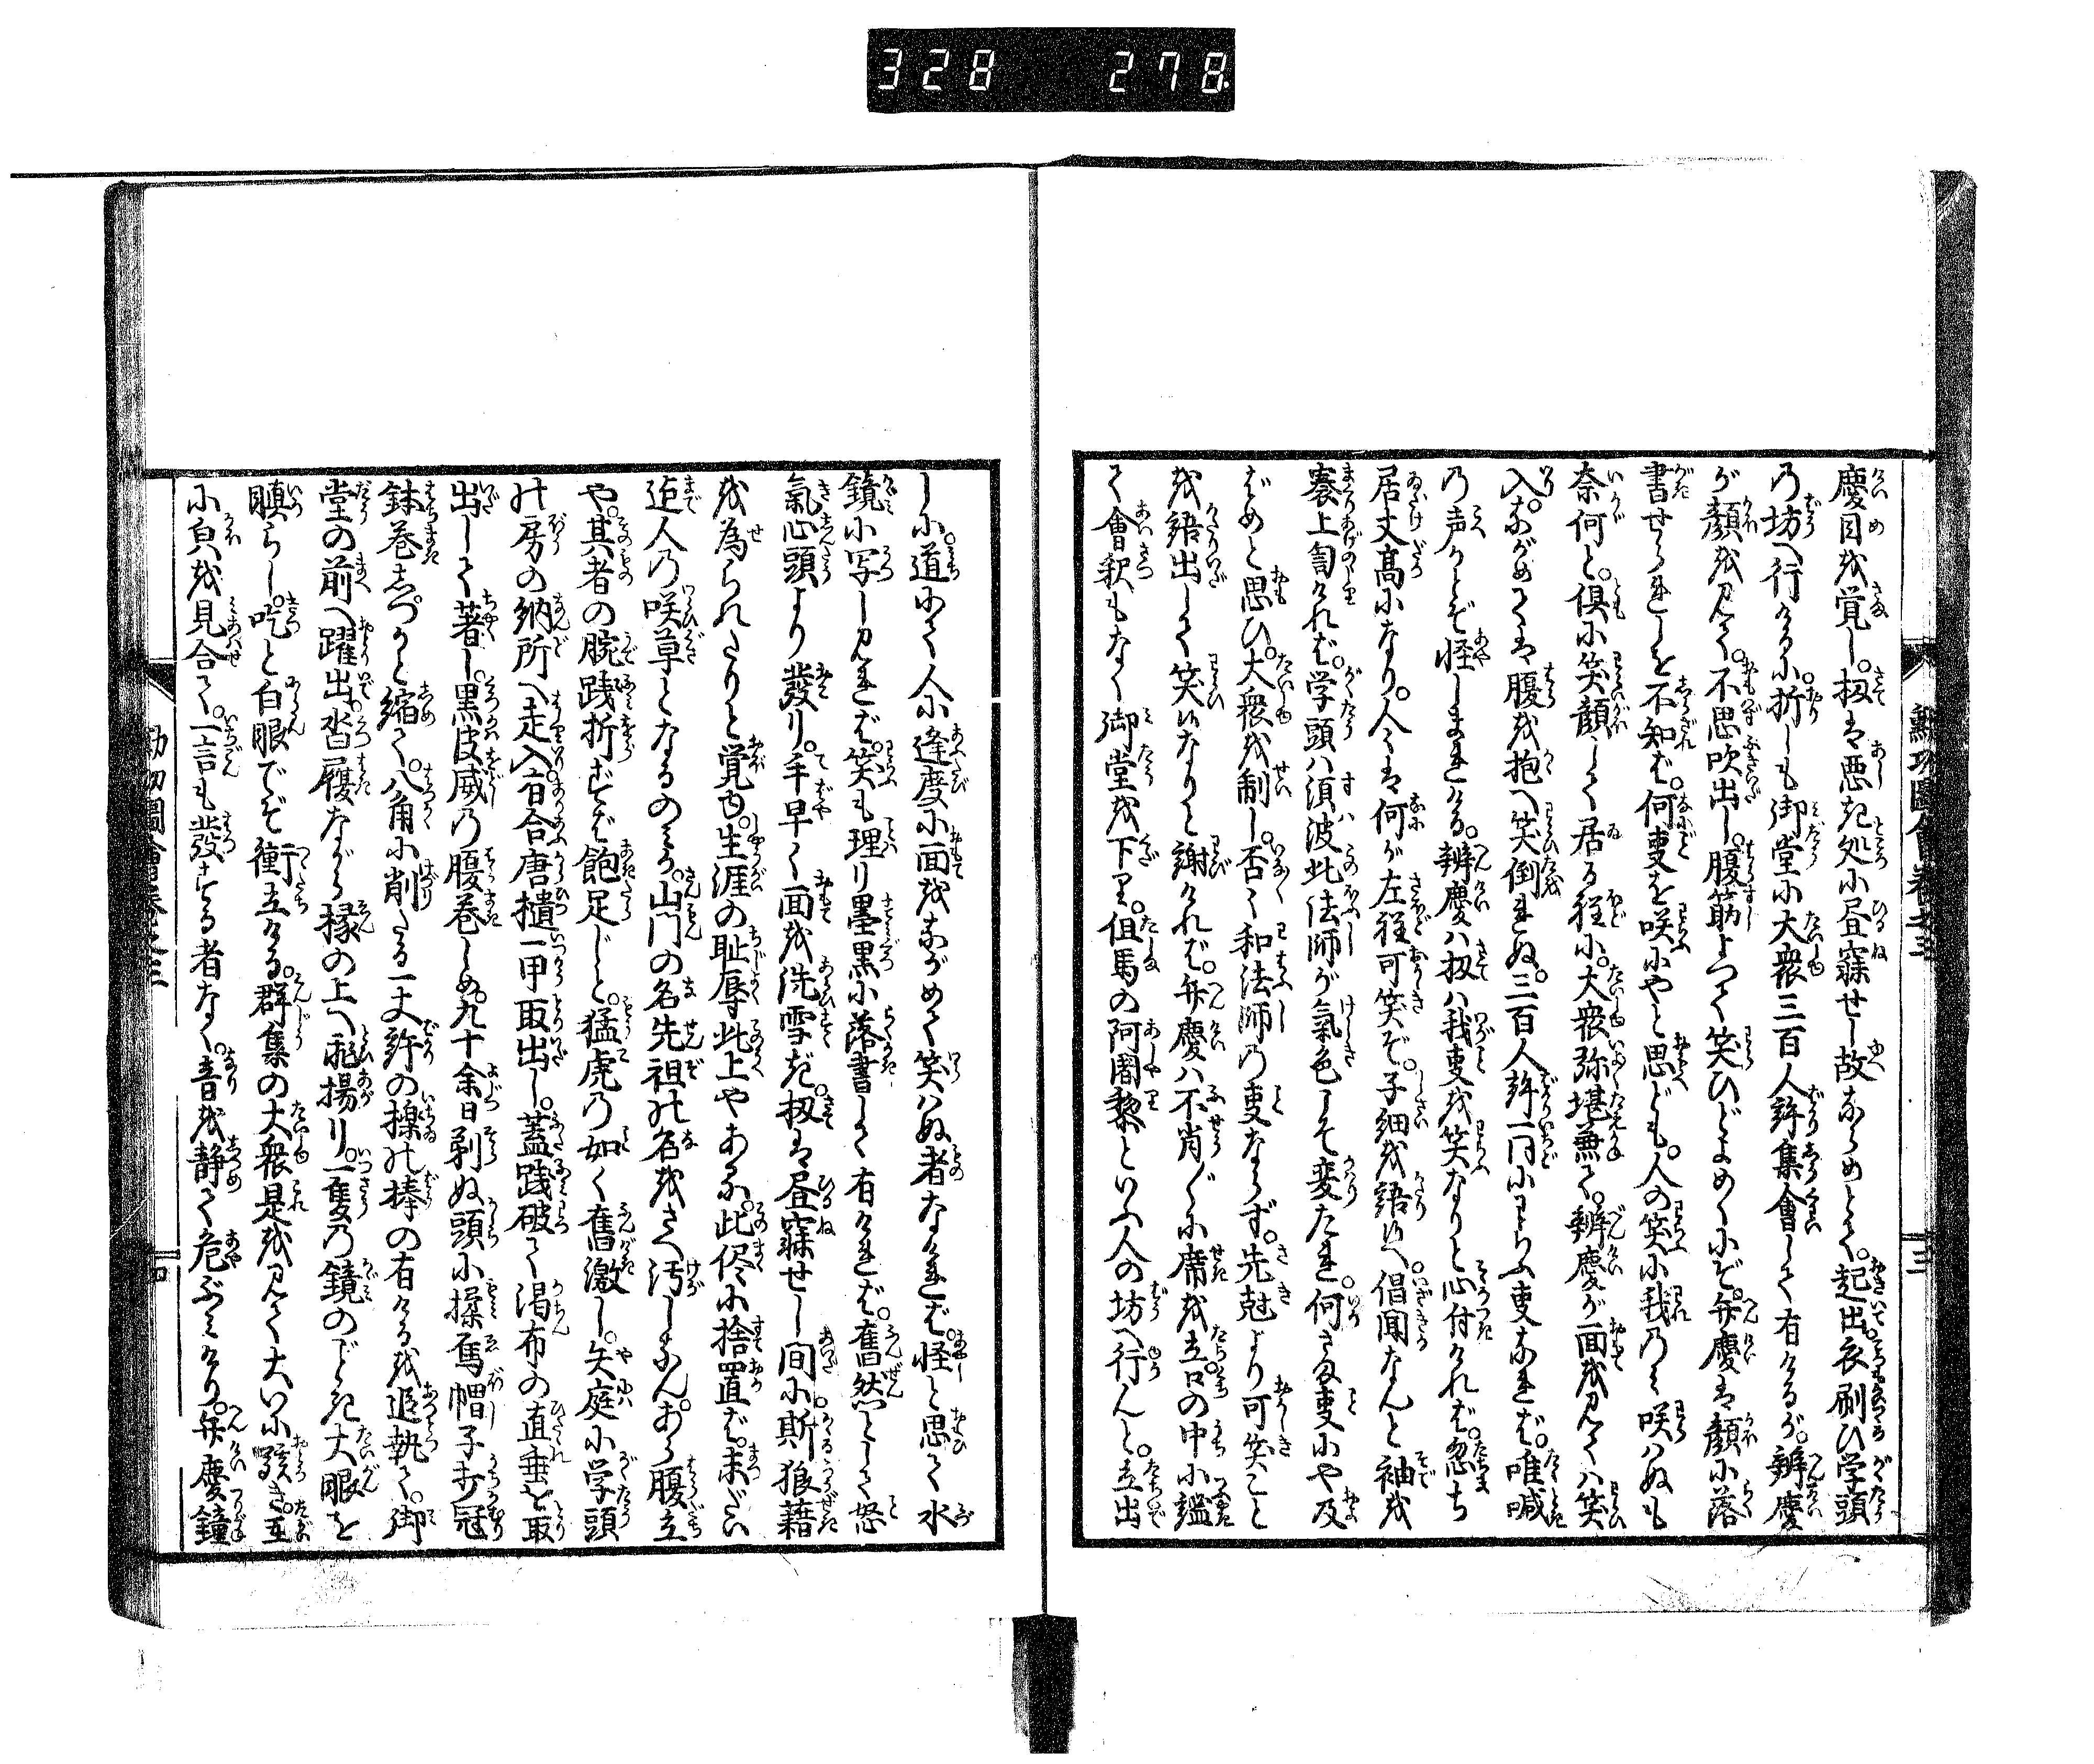 328 278
慶目を覚し。扨は悪き処に昼寐せし故ならめとて。起出衣刷ひ学頭
の坊へ行けるに折しも御堂に大衆三百人許集會して有けるが。辨慶
が顔を見て。不思吹出し。腹筋よつて笑ひどよめくにぞ。弁慶は顔に落
書せられしを不知ば。何事を咲にやと思ども。人の笑に我のみ咲はぬも
奈何と。倶に笑顔して居る程に。大衆弥堪兼て。辨慶が面を見ては笑
入。ながめては腹を抱へ笑倒れぬ。三百人許一同にわらふ事なれば。唯喊
の声かとぞ怪しまれける。辨慶ハ扨ハ我事を笑なりと心付ければ。忽ち
居丈高になり。人々は何が左程可笑ぞ。子細を語候へ。倡聞なんと袖を
褰上訇ければ。学頭ハ須波此法師が氣色こそ変たれ。何さま事にや及
ばめと思ひ。大衆を制し。否々和法師の事ならず。先尅より可笑こと
を語出して笑候なりと謝ければ。弁慶ハ不肖〴〵に席を立。口の中に謐
て會釈もなく御堂を下り。但馬の阿闍黎といふ人の坊へ行んと。立出
しに。道にて人に逢度に面をながめて笑はぬ者なければ。怪と思て水
鏡に写し見れば。笑も理り墨黒に落書して有ければ。奮然として怒
氣心頭より發り。手早く面を洗雪だ。扨は昼寐せし間に斯狼藉
を為られたりと覚ゆ。生涯の耻辱此上やある。此侭に捨置ば。末だい
迄人の咲草となるのみか。山門の名先祖の名をさへ汚しなん。あら腹立
や。其者の腕践折ずば飽足じと。猛虎の如く奮激し。矢庭に学頭
の房の納所へ走入。有合唐櫃一甲取出し。蓋践破て渇布の直垂を取
出して著し。黒皮威の腹巻しめ。九十余日剃ぬ頭に揉烏帽子打冠
鉢巻しづかと縮て。八角に削たる一丈許の檪の棒の有けるを追執て。御
堂の前へ躍出。沓履ながら縁の上へ飛揚り。一隻の鏡のごとき大眼を
瞋らし。吃と白眼でぞ衝立ける。群集の大衆是を見て大いに駭き。互
に㒵を見合て。一言も發する者なく。音を静て危ぶみけり。弁慶鐘